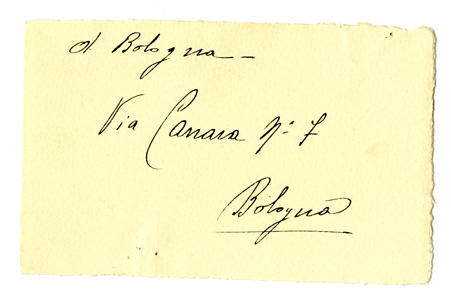 A Bologna -
Via Carrara Nº 7
Bologna